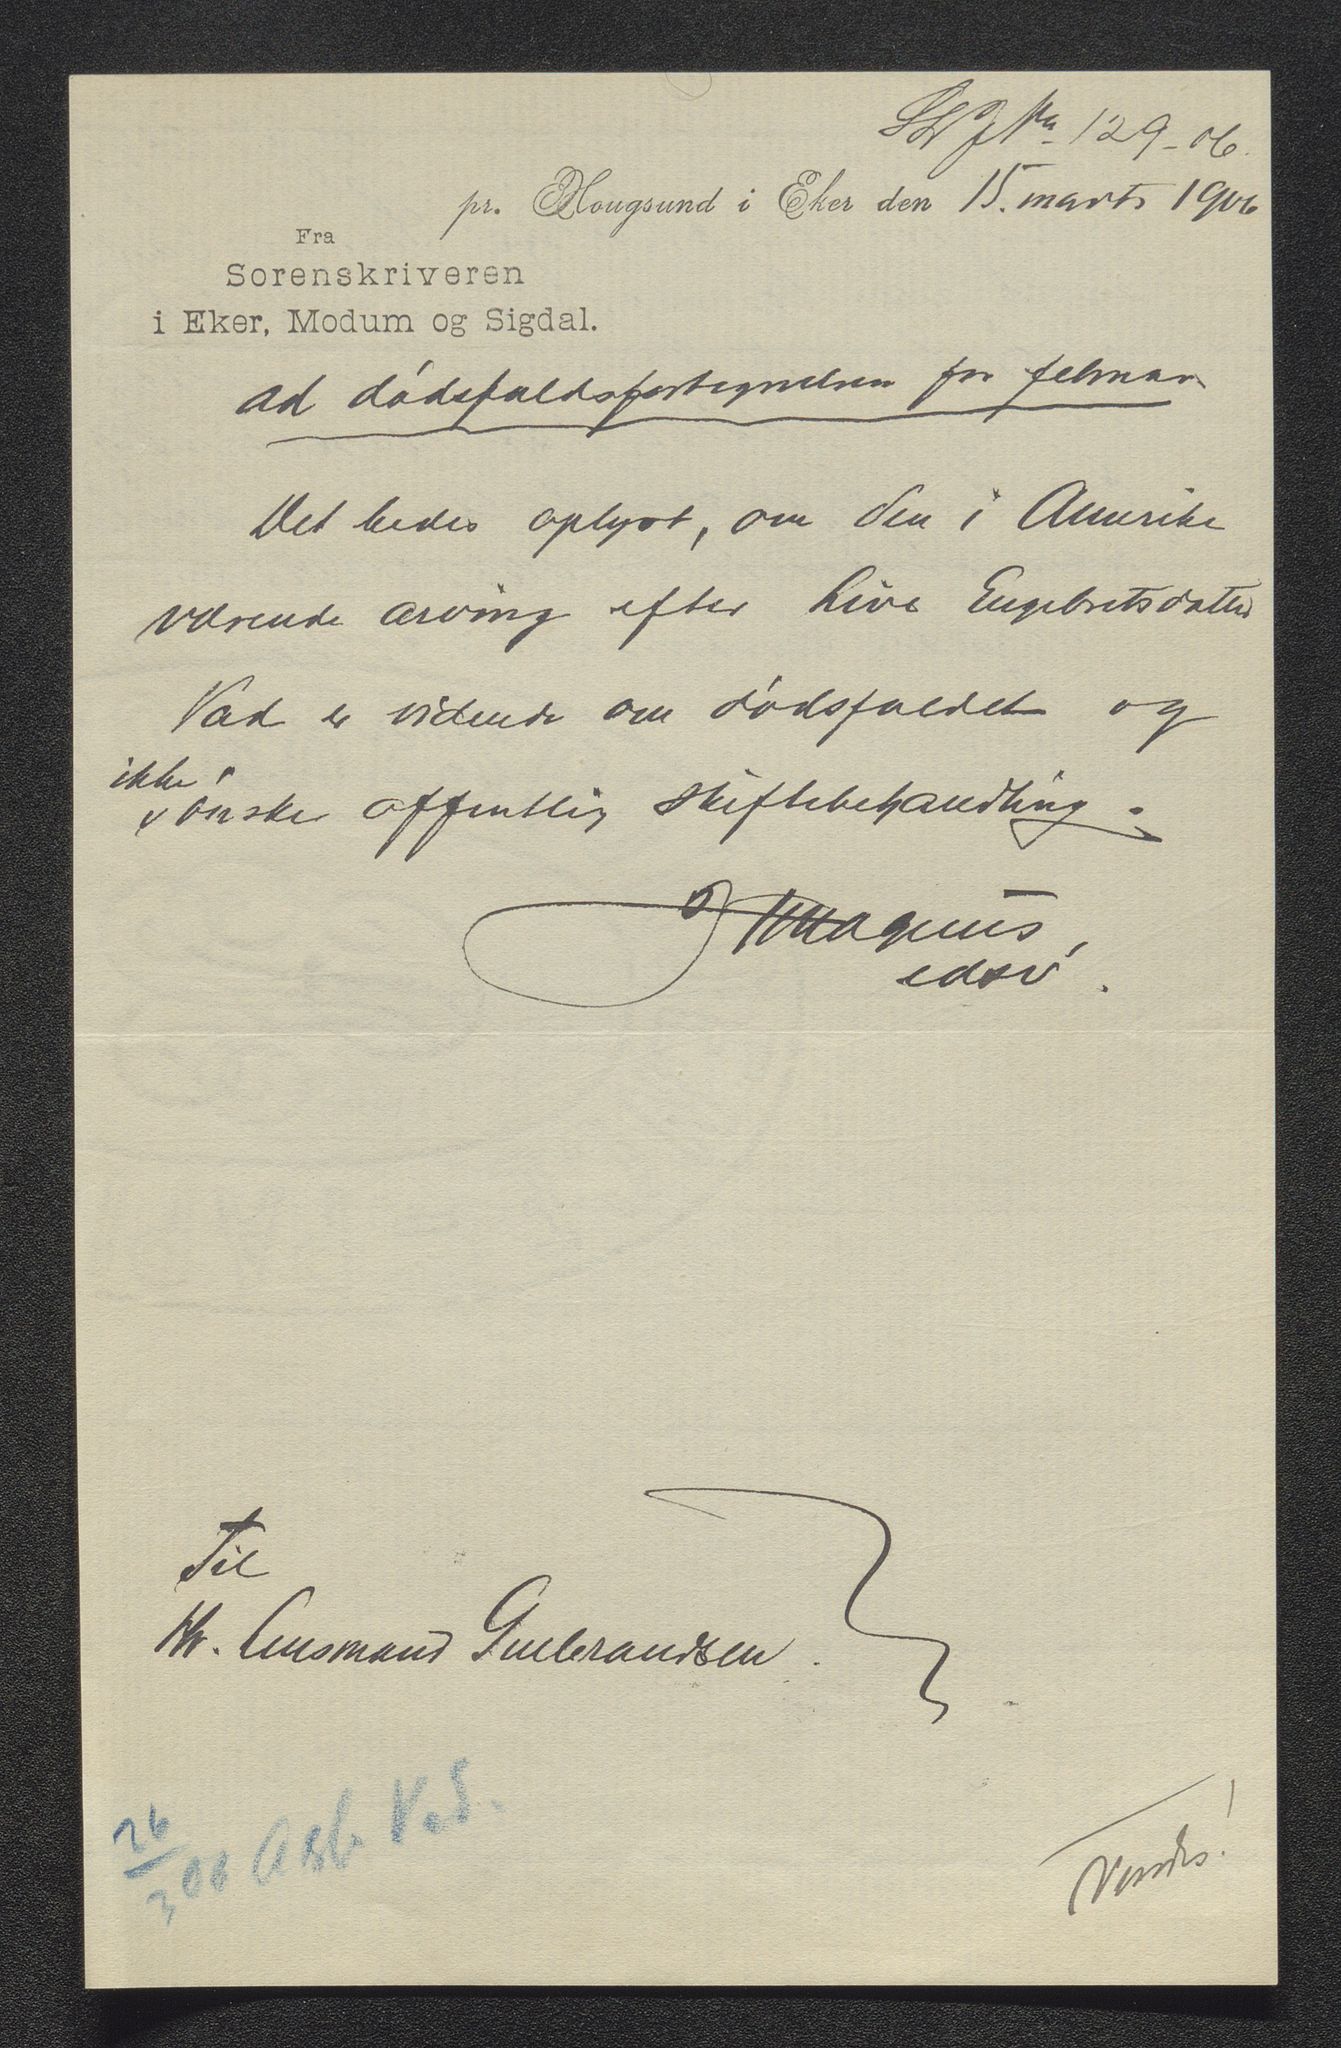 No 129-06.
pr. Hougsund i Eker den 15. marts 1906
Fra
Sorenskriveren
i Eker, Modum og Sigdal.
ad dødsfaldsfortegnelsen for februar
Det bedes oplyst, om den i Amerika
værende arving efter Live Engebretsdatter
Vad er vidende om dødsfaldet og
ikke
ønsker offentlig skiftebehandling.
Magnus,
edsv.
Til
Hr. Lensmand Gulbrandsen.
26/3 06 Vad.
Vendes!